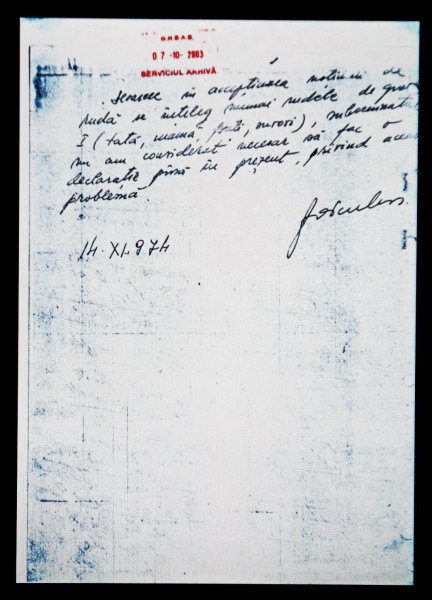 O.N.B.A.S.
07-10-2003
SERVICIUL ARHIVĂ
Deoarece în accepțiunea noțiunii de
rudă se înțeleg numai rudele de grad
I (tată, mamă, frați, surori), subsemnata
nu am considerat necesar să fac o
declarație pînă în prezent, privind
problemă.
14.XI.974